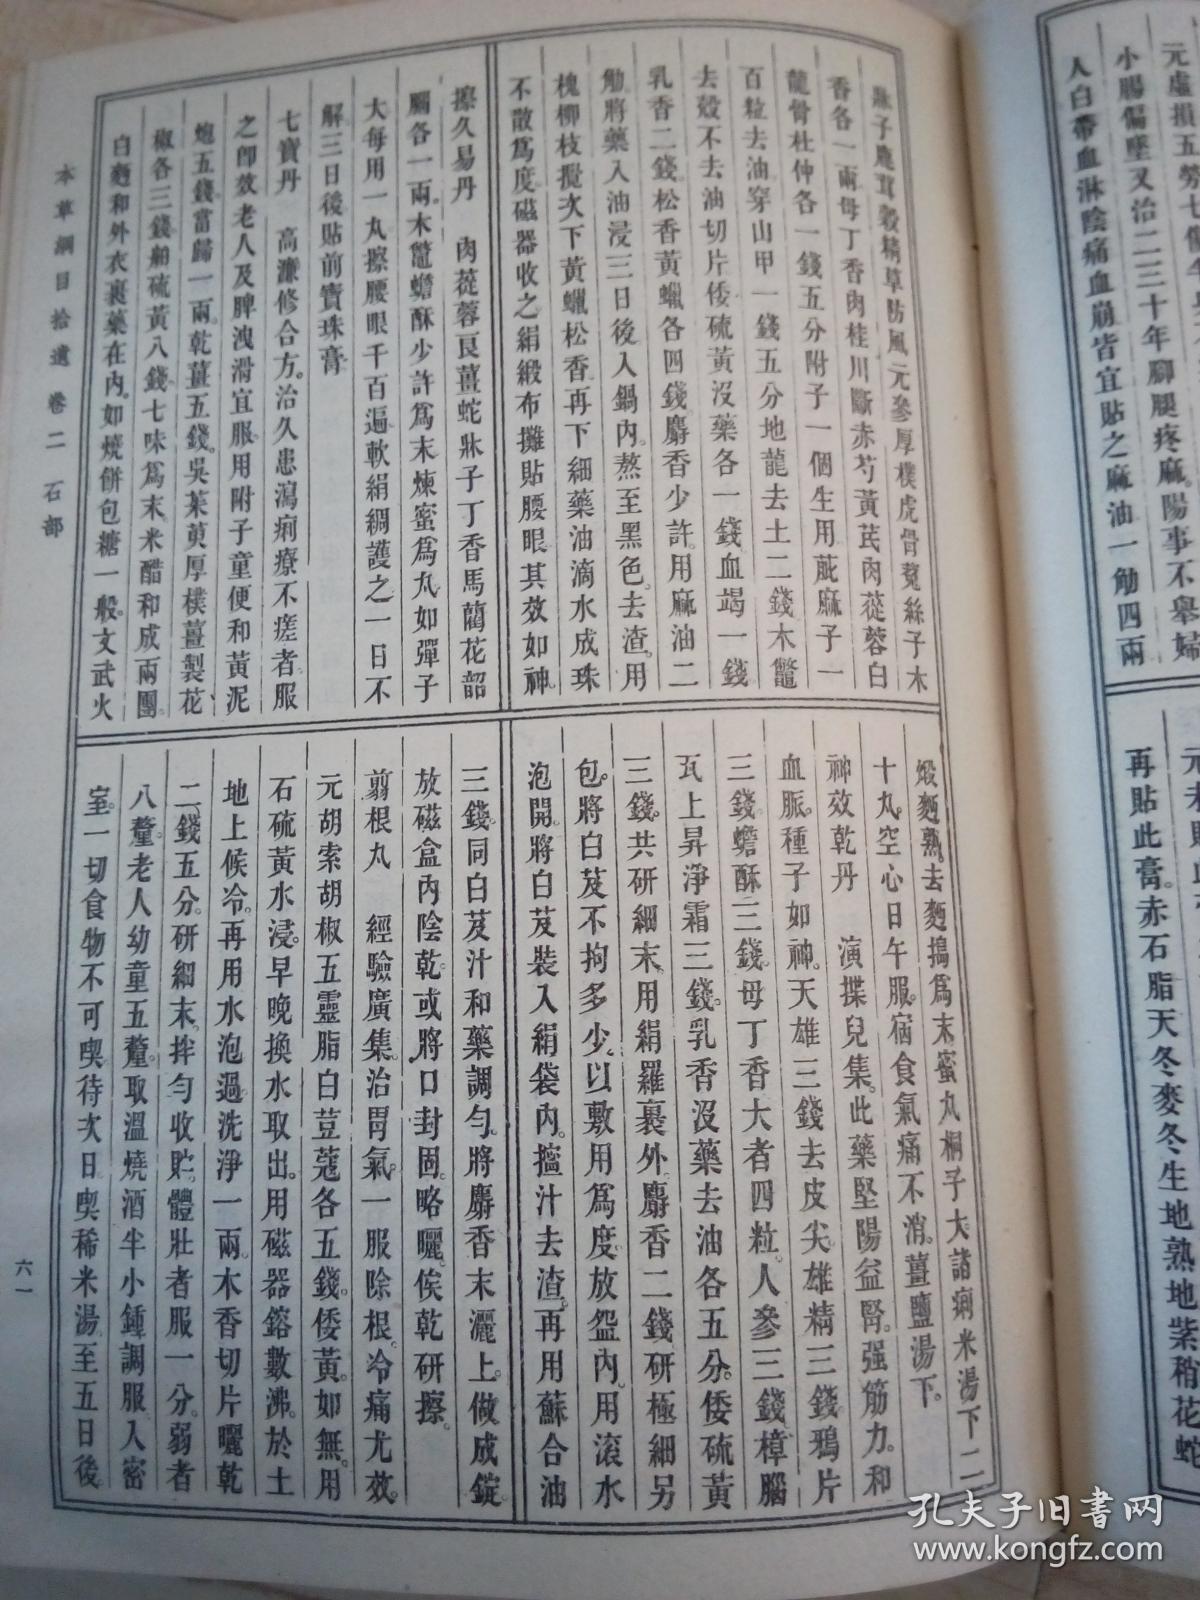 元虛損五勞七傷
小腸偏墜又治二三十年腳腿疼麻陽事不舉婦
人白帶血淋陰痛血崩皆宜貼之麻油一觔四兩
再貼此膏赤石脂天冬麥冬生地熟地紫稍花蛇
牀子鹿茸穀精草防風元參厚樸虎骨菟絲子木
香各一兩母丁香肉桂川斷赤芍黃芪肉蓯蓉白
龍骨杜仲各一錢五分附子一個生用蓖麻子一
百粒去油穿山甲一錢五分地龍去土二錢木鼈
去殼不去油切片倭硫黃沒藥各一錢血竭一錢
乳香二錢松香黃蠟各四錢麝香少許用麻油二
觔將藥入油浸三日後入鍋內熬至黑色去渣用
槐柳枝攪次下黃蠟松香再下細藥油滴水成珠
不散爲度磁器收之絹緞布攤貼腰眼其效如神
擦久易丹　肉蓯蓉良薑蛇牀子丁香馬藺花韶
腦各一兩木鼈蟾酥少許爲末煉蜜爲丸如彈子
大每用一丸擦腰眼千百遍軟絹綢護之一日不
解三日後貼前寶珠膏
七寶丹　高濂修合方治久患瀉痢療不瘥者服
之卽效老人及脾洩滑宜服用附子童便和黃泥
炮五錢當歸一兩乾薑五錢吳茱萸厚樸薑製花
椒各三錢舶硫黃八錢七味爲末米醋和成兩團
白麪和外衣裹藥在內如燒餅包糖一般文武火
煅麪熟去麪搗爲末蜜丸桐子大諸痢米湯下二
十丸空心日午服宿食氣痛不消薑鹽湯下
神效乾丹　演揲兒集此藥堅陽益腎强筋力和
血脈種子如神天雄三錢去皮尖雄精三錢鴉片
三錢蟾酥三錢母丁香大者四粒人參三錢樟腦
瓦上昇淨霜三錢乳香沒藥去油各五分倭硫黃
三錢共研細末用絹羅裹外麝香二錢研極細另
包將白芨不拘多少以敷用爲度放盌內用滾水
泡開將白芨裝入絹袋內擂汁去渣再用蘇合油
三錢同白芨汁和藥調勻將麝香末灑上做成錠
放磁盒內陰乾或將口封固略曬俟乾研擦
翦根丸　經驗廣集治胃氣一服除根冷痛尤效
元胡索胡椒五靈脂白荳蔻各五錢倭黃如無用
石硫黃水浸早晚換水取出用磁器鎔數沸於土
地上候冷再用水泡過洗淨一兩木香切片曬乾
二錢五分研細末拌勻收貯體壯者服一分弱者
八釐老人幼童五釐取溫燒酒半小鍾調服入密
室一切食物不可喫待次日喫稀米湯至五日後
本草綱目拾遺　卷二　石部
六一
孔夫子旧书网
www.kongfz.com